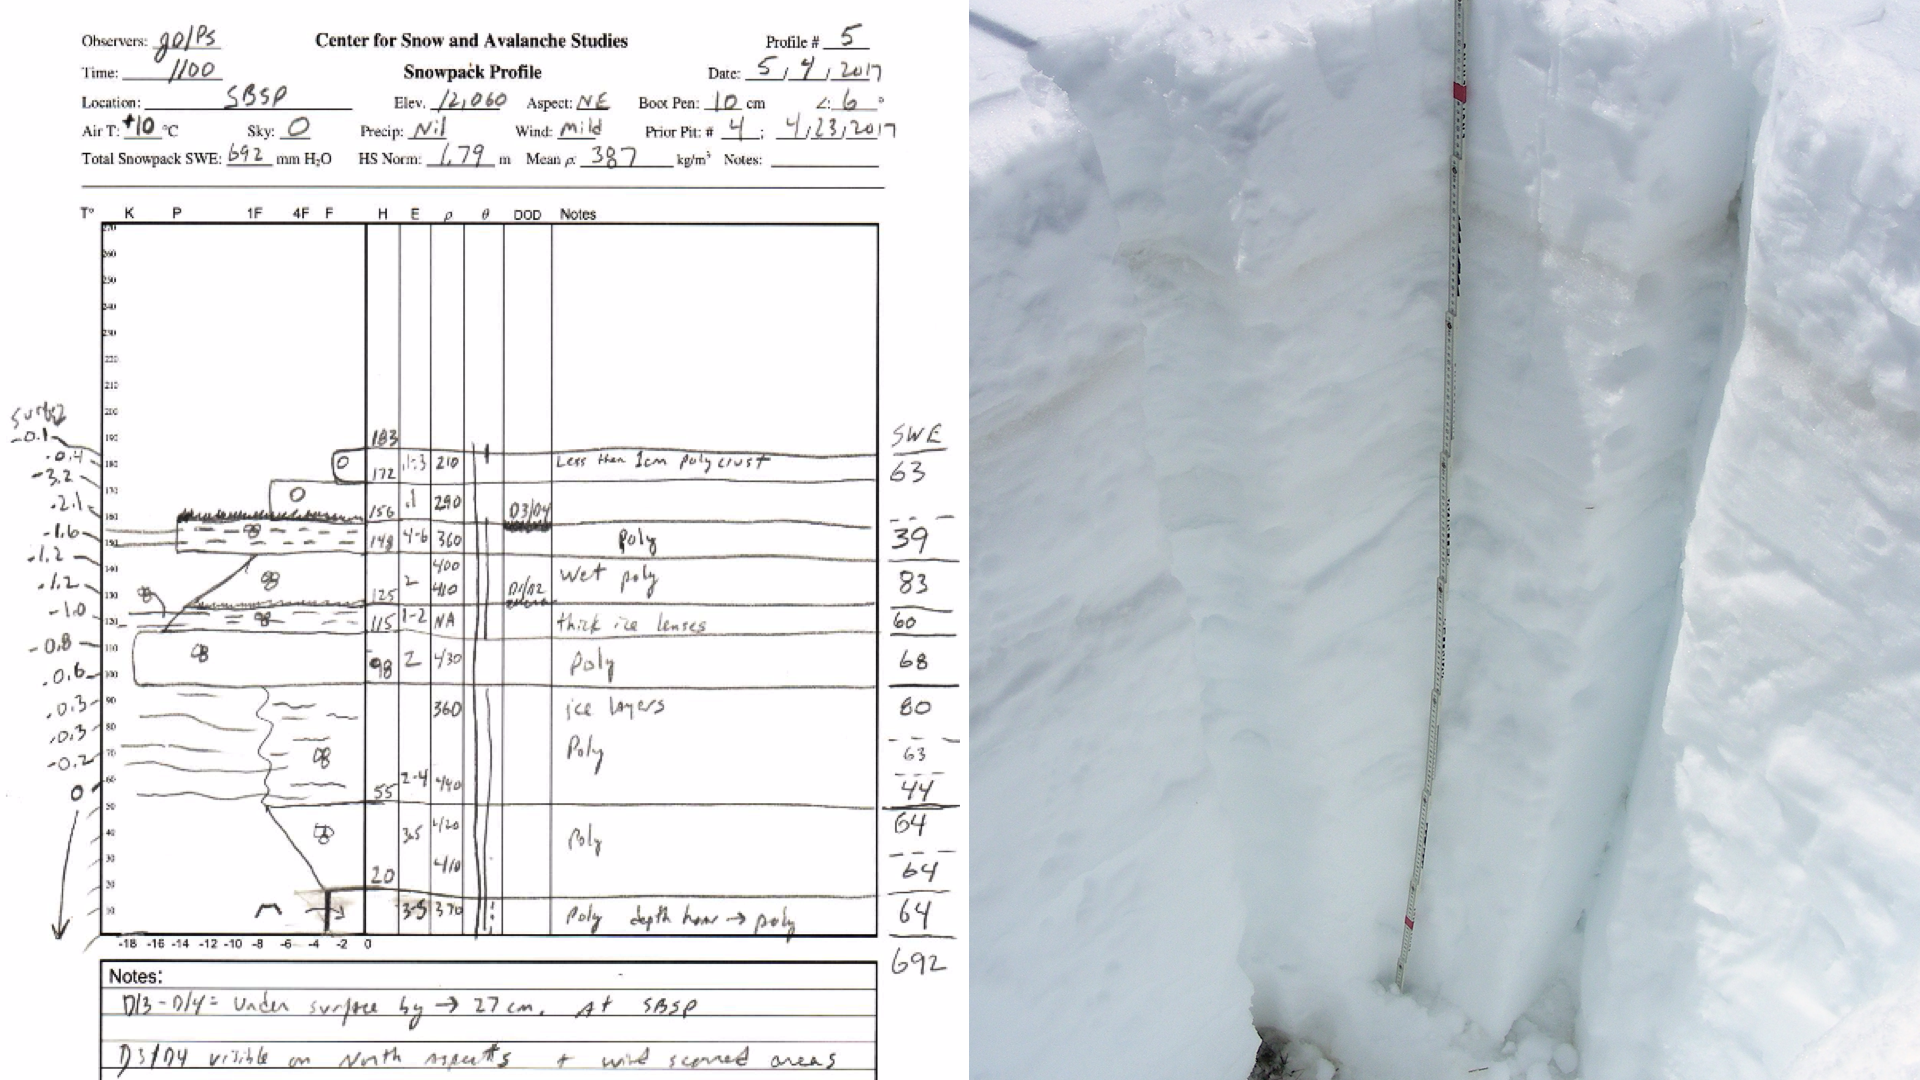 Observers: go/Ps Center for Snow and Avalanche Studies Profile # 5
Time: 1100 Snowpack Profile Date: 5, 4, 2017
Location: SBSP Elev. 12,060 Aspect: NE Boot Pen: 10 cm ∠: 6 °
Air T: +10 °C Sky: O Precip: Nil Wind: Mild Prior Pit: # 4 ; 4,23,2017
Total Snowpack SWE: 692 mm H₂O HS Norm: 1.79 m Mean ρ: 387 kg/m³ Notes:
T° K P 1F 4F F H E ρ θ DOD Notes
270
260
250
240
230
220
210
200
190 183 SWE
-0.1
-0.4 180 172 .1-.3 210 Less than 1cm poly crust 63
-3.2 170
-2.1 160 156 .1 290 D3/D4
-1.6 150 148 4-6 360 Poly 39
-1.2 140 400 wet poly 83
-1.2 130 125 2 410 D1/D2
-1.0 120 115 1-2 NA thick ice lenses 60
-0.8 110
-0.6 100 98 2 430 Poly 68
-0.3 90 360 ice layers 80
-0.3 80
-0.2 70 Poly 63
0 60 55 2-4 440 44
50
40 3-5 420 Poly 64
30 410 64
20 20
10 3-5 370 Poly depth hoar → poly 64
-18 -16 -14 -12 -10 -8 -6 -4 -2 0
692
Notes:
D/3-D/4= Under surface by → 27 cm. At SBSP
D3/D4 visible on North aspects + wind scoured areas